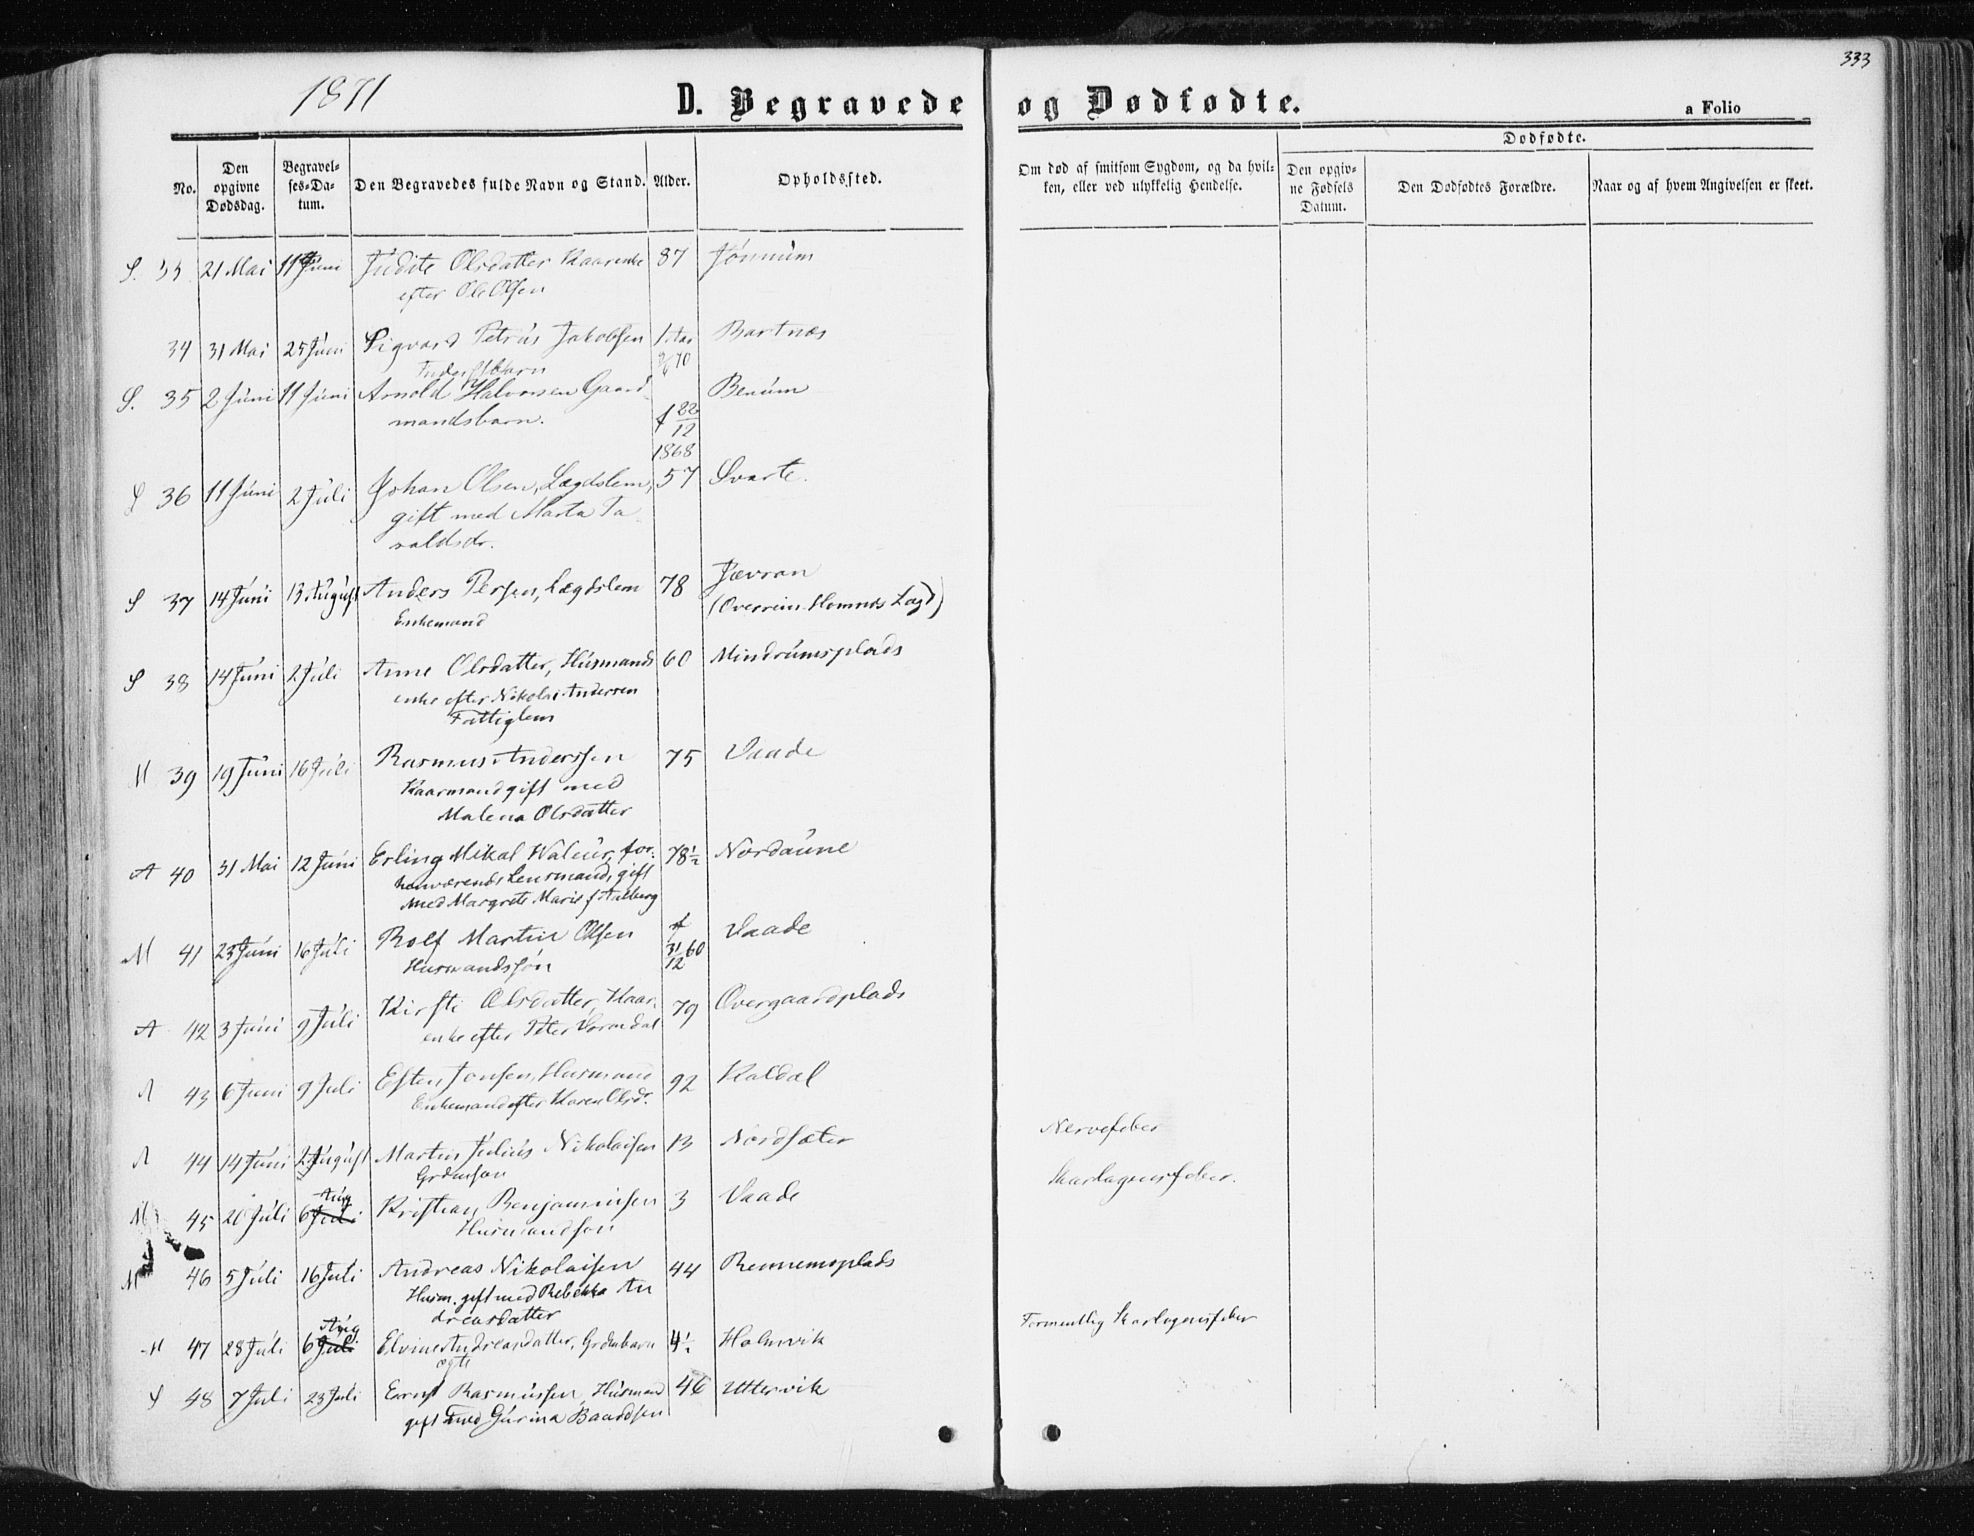 333
1871
D. Begravede og Dødfødte.
a Folio
No.
Den opgivne Dødsdag.
Begravelses-Datum.
Den Begravedes fulde Navn og Stand.
Alder.
Opholdssted.
Om død af smitsom Sygdom, og da hvilken, eller ved ulykkelig Hendelse.
Dødfødte.
Den opgivne Fødsels Datum.
Den Dødfødtes Forældre.
Naar og af hvem Angivelsen er skeet.
S. 33 21 Mai 11 Juni Judite Olsdatter Kaarenke 87
efter Ole Olsen
34 31 Mai 25 Juni Sigvard Petrus Jakobsen Bartnæs
S. 35 2 Juni 11 Juni Arnold Halvorsen Gaard Benum
mandsbarn. f 22/12
1868
S 36 11 Juni 2 Juli Johan Olsen, Lægdslem, 57 Svarte.
gift med Marta Ta
valdsdr.
S 37 14 Juni 13 August Anders Persen, Lægdslem 78 Jævran
Enkemand (Overrein-Homnes Lægd)
S 38 14 Juni 2 Juli Anne Olsdatter, Husmands 60 Mindrumsplads
enke efter Nikolai Andersen
Fattiglem
M 39 19 Juni 16 Juli Rasmus Anderssen 75 Vaade
Kaarmand gift med
Malena Olsdatter
A 40 31 Mai 12 Juni Erling Mikal Waleur, for: 78½ Nordaune
henværende Lensmand, gift
med Margrete Marie f Aalberg
M 41 23 Juni 16 Juli Rolf Martin Olsen f 31/12 60 Vaade
Husmandssøn
A 42 3 Juni 9 Juli Kirsti Olsdatter, Kaar 79 Overgaardplads
enke efter Peter
A 43 6 Juni 9 Juli Esten Jonsen, Husmand 92 Kaldal
Enkemand efter Karen Olsdr.
A 44 14 Juni 2 August Martin Julius Nikolaisen 13 Nordsæter Nervefeber
Grdmsøn
M 45 20 Juli 6 Juli Aug Kristian Benjaminsen 3 Vaade Skarlagensfeber.
Husmandsøn
M 46 5 Juli 16 Juli Andreas Nikolaisen 44 Rennemsplads
Husm. gift med Rebekka An
dreasdatter
M 47 28 Juli 6 Juli Aug Elvine Andreasdatter, Grdmbarn 4½ Holmvik Formentlig Skarlagensfeber
ægte
S 48 7 Juli 23 Juli Ernst Rasmussen, Husmand 46 Uttervik
gift med Gurina Baardsen